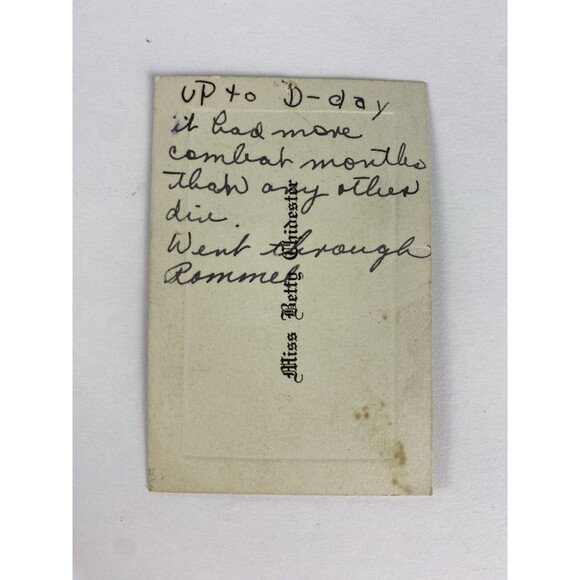 UP to D-day
it had more
combat months
than any other
div.
Went through
Rommel
Miss Betty Chidester